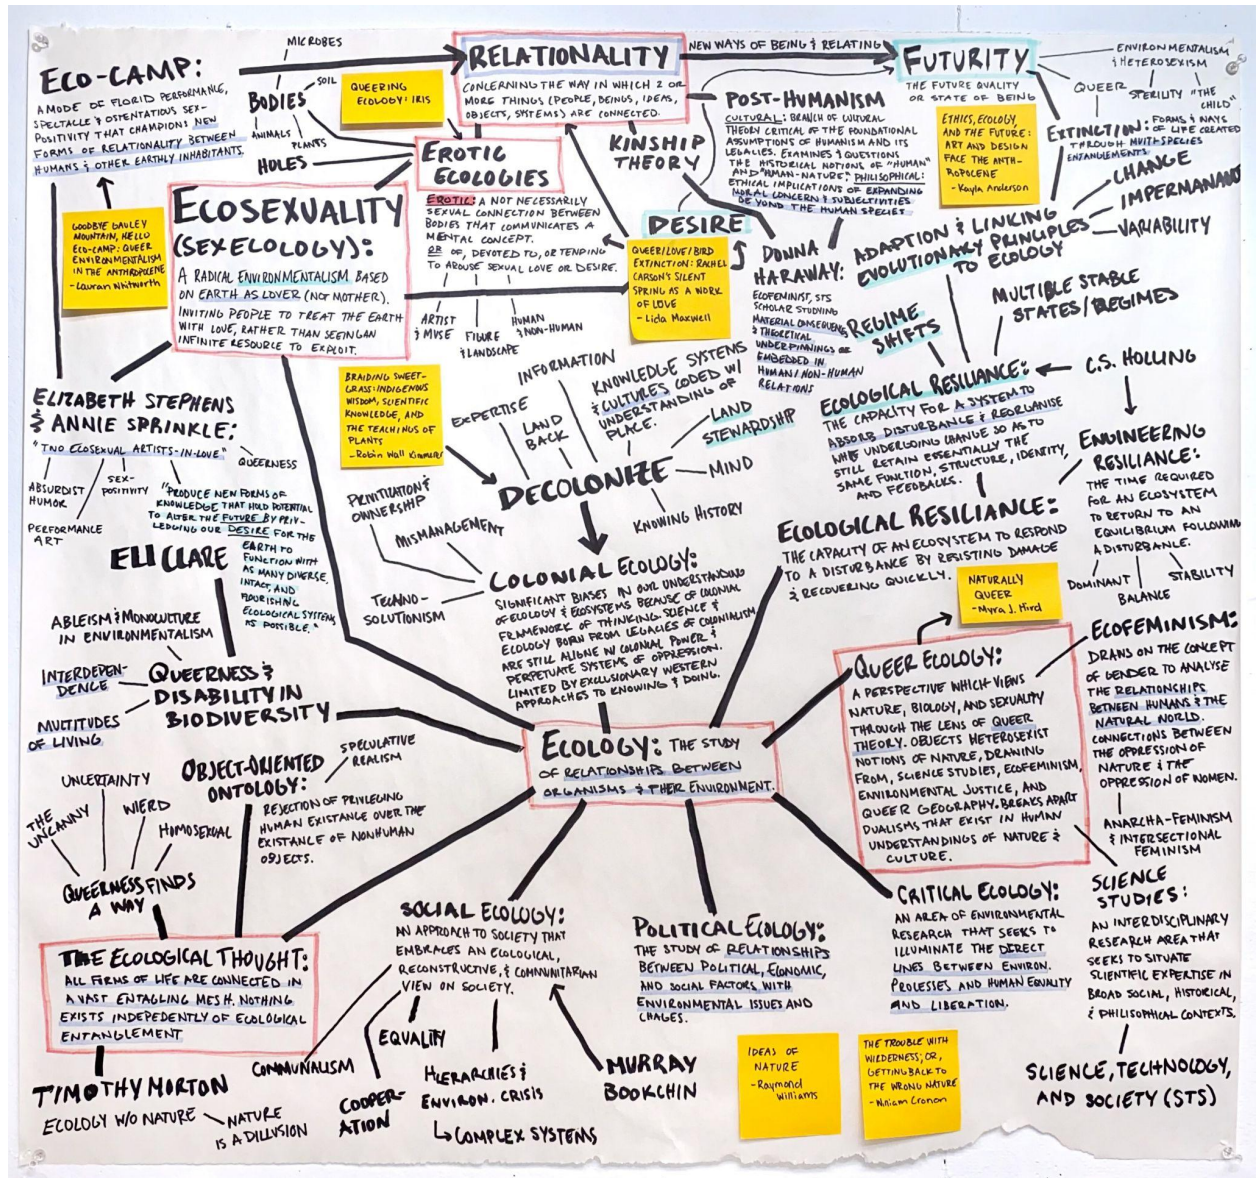 ECO-CAMP:
A MODE OF FLORID PERFORMANCE,
SPECTACLE & OSTENTATIOUS SEX-
POSITIVITY THAT CHAMPIONS NEW
FORMS OF RELATIONALITY BETWEEN
HUMANS & OTHER EARTHLY INHABITANTS.
MICROBES
SOIL
BODIES
ANIMALS
PLANTS
HOLES
QUEERING
ECOLOGY: IRIS
RELATIONALITY
CONCERNING THE WAY IN WHICH 2 OR
MORE THINGS (PEOPLE, BEINGS, IDEAS,
OBJECTS, SYSTEMS) ARE CONNECTED.
NEW WAYS OF BEING & RELATING
FUTURITY
THE FUTURE QUALITY
OR STATE OF BEING
ENVIRONMENTALISM
& HETEROSEXISM
QUEER
STERILITY
"THE
CHILD"
ETHICS, ECOLOGY,
AND THE FUTURE:
ART AND DESIGN
FACE THE ANTH-
ROPOCENE
- Kayla Anderson
EXTINCTION: FORMS & WAYS
OF LIFE CREATED
THROUGH MUITI-SPECIES
ENTANGLEMENTS
CHANGE
IMPERMANANT
VARIABILITY
POST-HUMANISM
CULTURAL: BRANCH OF CULTURAL
THEORY CRITICAL OF THE FOUNDATIONAL
ASSUMPTIONS OF HUMANISM AND ITS
LEGACIES. EXAMINES & QUESTIONS
THE HISTORICAL NOTIONS OF "HUMAN"
AND "HUMAN-NATURE," PHILISOPHICAL:
ETHICAL IMPLICATIONS OF EXPANDING
MORAL CONCERN & SUBJECTIVITIES
BEYOND THE HUMAN SPECIES
KINSHIP
THEORY
EROTIC
ECOLOGIES
EROTIC: A NOT NECESSARILY
SEXUAL CONNECTION BETWEEN
BODIES THAT COMMUNICATES A
MENTAL CONCEPT.
OR OF, DEVOTED TO, OR TENDING
TO AROUSE SEXUAL LOVE OR DESIRE.
ARTIST
& MUSE
FIGURE
& LANDSCAPE
HUMAN
& NON-HUMAN
DESIRE
QUEER/LOVE/BIRD
EXTINCTION: RACHEL
CARSON'S SILENT
SPRING AS A WORK
OF LOVE
- Lida Maxwell
DONNA
HARAWAY:
ECOFEMINIST, STS
SCHOLAR STUDYING
MATERIAL
& THEORETICAL
UNDERPINNINGS OR
EMBEDDED IN
HUMAN/NON-HUMAN
RELATIONS
ADAPTION & LINKING
EVOLUTIONARY PRINCIPLES
TO ECOLOGY
REGIME
SHIFTS
MULTIPLE STABLE
STATES/REGIMES
C.S. HOLLING
GOODBYE GAULEY
MOUNTAIN, HELLO
ECO-CAMP: QUEER
ENVIRONMENTALISM
IN THE ANTHROPOCENE
- Lauran Whitworth
ECOSEXUALITY
(SEXECOLOGY):
A RADICAL ENVIRONMENTALISM BASED
ON EARTH AS LOVER (NOT MOTHER).
INVITING PEOPLE TO TREAT THE EARTH
WITH LOVE, RATHER THAN SEEING AN
INFINITE RESOURCE TO EXPLOIT.
ELIZABETH STEPHENS
& ANNIE SPRINKLE:
"TWO ECOSEXUAL ARTISTS-IN-LOVE"
QUEERNESS
ABSURDIST
HUMOR
SEX-
POSITIVITY
PERFORMANCE
ART
"PRODUCE NEW FORMS OF
KNOWLEDGE THAT HOLD POTENTIAL
TO ALTER THE FUTURE BY PRIV-
LEDGING OUR DESIRE FOR THE
EARTH TO
FUNCTION WITH
AS MANY DIVERSE,
INTACT, AND
FLOURISHING
ECOLOGICAL SYSTEMS
AS POSSIBLE."
BRAIDING SWEET-
GRASS: INDIGENOUS
WISDOM, SCIENTIFIC
KNOWLEDGE, AND
THE TEACHINGS OF
PLANTS
- Robin Wall Kimmerer
EXPERTISE
INFORMATION
LAND
BACK
KNOWLEDGE SYSTEMS
& CULTURES CODED W/
UNDERSTANDING OF
PLACE.
LAND
STEWARDSHIP
MIND
KNOWING HISTORY
DECOLONIZE
PRIVITIZATION &
OWNERSHIP
MISMANAGEMENT
TECHNO-
SOLUTIONISM
COLONIAL ECOLOGY:
SIGNIFICANT BIASES IN OUR UNDERSTANDING
OF ECOLOGY & ECOSYSTEMS BECAUSE OF COLONIAL
FRAMEWORK OF THINKING. SCIENCE &
ECOLOGY BORN FROM LEGACIES OF COLONIALISM
ARE STILL ALIGNE W/ COLONIAL POWER &
PERPETUATE SYSTEMS OF OPPRESSION.
LIMITED BY EXCLUSIONARY WESTERN
APPROACHES TO KNOWING & DOING.
ECOLOGICAL RESILIANCE:
THE CAPACITY FOR A SYSTEM TO
ABSORB DISTURBANCE & REORGANISE
WHILE UNDERGOING CHANGE SO AS TO
STILL RETAIN ESSENTIALLY THE
SAME FUNCTION, STRUCTURE, IDENTITY,
AND FEEDBACKS.
ENGINEERING
RESILIANCE:
THE TIME REQUIRED
FOR AN ECOSYSTEM
TO RETURN TO AN
EQUILIBRIUM FOLLOWING
A DISTURBANCE.
DOMINANT
BALANCE
STABILITY
ECOLOGICAL RESILIANCE:
THE CAPACITY OF AN ECOSYSTEM TO RESPOND
TO A DISTURBANCE BY RESISTING DAMAGE
& RECOVERING QUICKLY.
NATURALLY
QUEER
- Myra J. Hird
ELI CLARE
ABLEISM & MONOCULTURE
IN ENVIRONMENTALISM
INTERDEPEN-
DENCE
MULTITUDES
OF LIVING
QUEERNESS &
DISABILITY IN
BIODIVERSITY
ECOLOGY: THE STUDY
OF RELATIONSHIPS BETWEEN
ORGANISMS & THEIR ENVIRONMENT.
QUEER ECOLOGY:
A PERSPECTIVE WHICH VIEWS
NATURE, BIOLOGY, AND SEXUALITY
THROUGH THE LENS OF QUEER
THEORY. OBJECTS HETEROSEXIST
NOTIONS OF NATURE, DRAWING
FROM, SCIENCE STUDIES, ECOFEMINISM,
ENVIRONMENTAL JUSTICE, AND
QUEER GEOGRAPHY. BREAKS APART
DUALISMS THAT EXIST IN HUMAN
UNDERSTANDINGS OF NATURE &
CULTURE.
ECOFEMINISM:
DRAWS ON THE CONCEPT
OF GENDER TO ANALYSE
THE RELATIONSHIPS
BETWEEN HUMANS & THE
NATURAL WORLD.
CONNECTIONS BETWEEN
THE OPPRESSION OF
NATURE & THE
OPPRESSION OF WOMEN.
ANARCHA-FEMINISM
& INTERSECTIONAL
FEMINISM
OBJECT-ORIENTED
ONTOLOGY:
SPECULATIVE
REALISM
REJECTION OF PRIVILEGING
HUMAN EXISTANCE OVER THE
EXISTANCE OF NONHUMAN
OBJECTS.
UNCERTAINTY
THE
UNCANNY
WIERD
HOMOSEXUAL
QUEERNESS FINDS
A WAY
THE ECOLOGICAL THOUGHT:
ALL FORMS OF LIFE ARE CONNECTED IN
A VAST ENTAGLING MESH. NOTHING
EXISTS INDEPEDENTLY OF ECOLOGICAL
ENTANGLEMENT
TIMOTHY MORTON
ECOLOGY W/O NATURE
NATURE
IS A DILLUSION
SOCIAL ECOLOGY:
AN APPROACH TO SOCIETY THAT
EMBRACES AN ECOLOGICAL,
RECONSTRUCTIVE, & COMMUNITARIAN
VIEW ON SOCIETY.
COMMUNALISM
COOPER-
ATION
EQUALITY
HIERARCHIES &
ENVIRON. CRISIS
COMPLEX SYSTEMS
MURRAY
BOOKCHIN
POLITICAL ECOLOGY:
THE STUDY OF RELATIONSHIPS
BETWEEN POLITICAL, ECONOMIC,
AND SOCIAL FACTORS WITH
ENVIRONMENTAL ISSUES AND
CHAGES.
CRITICAL ECOLOGY:
AN AREA OF ENVIRONMENTAL
RESEARCH THAT SEEKS TO
ILLUMINATE THE DIRECT
LINES BETWEEN ENVIRON.
PROCESSES AND HUMAN EQUALITY
AND LIBERATION.
SCIENCE
STUDIES:
AN INTERDISCIPLINARY
RESEARCH AREA THAT
SEEKS TO SITUATE
SCIENTIFIC EXPERTISE IN
BROAD SOCIAL, HISTORICAL,
& PHILISOPHICAL CONTEXTS.
SCIENCE, TECHNOLOGY,
AND SOCIETY (STS)
IDEAS OF
NATURE
- Raymond
Williams
THE TROUBLE WITH
WILDERNESS; OR,
GETTING BACK TO
THE WRONG NATURE
- William Cronon